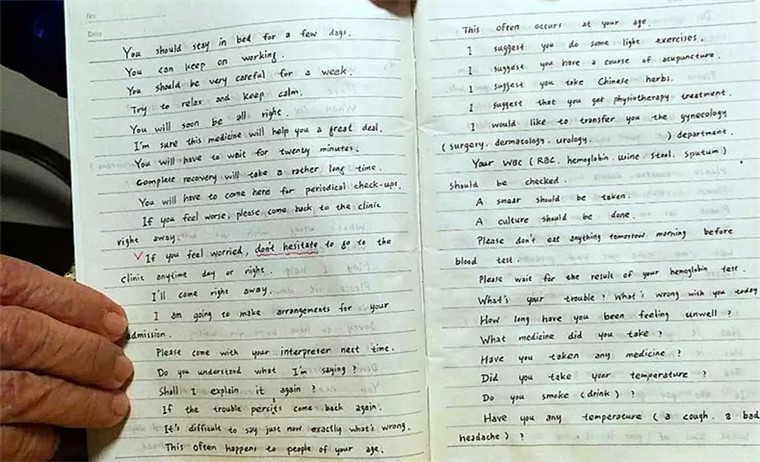 No.
Date
You should stay in bed for a few days.
You can keep on working.
You should be very careful for a week.
Try to relax and keep calm.
You will soon be all right.
I'm sure this medicine will help you a great deal.
You will have to wait for twenty minutes.
Complete recovery will take a rather long time.
You will have to come here for periodical check-ups.
If you feel worse, please come back to the clinic
right away.
✓If you feel worried, don't hesitate to go to the
clinic anytime day or right.
I'll come right away.
I am going to make arrangements for your
admission.
Please come with your interpreter next time.
Do you understand what I'm saying?
Shall I explain it again?
If the trouble persits come back again.
It's difficult to say just now exactly what's wrong.
This often happens to people of your age.
This often occurs at your age.
I suggest you do some light exercises.
I suggest you have a course of acupuncture.
I suggest you take Chinese herbs.
I suggest that you get physiotherapy treatment.
I would like to transfer you the gynecology
(surgery. dermatology. urology. ) department.
Your WBC (RBC. hemoglobin. urine. stool. sputum)
should be checked.
A smear should be taken.
A culture should be done.
Please don't eat anything tomorrow morning before
blood test.
Please wait for the result of your hemoglobin test.
What's your trouble? What's wrong with you today
How long have you been feeling unwell?
What medicine did you take?
Have you taken any medicine?
Did you take your temperature?
Do you smoke (drink)?
Have you any temperature (a cough. a bad
headache)?